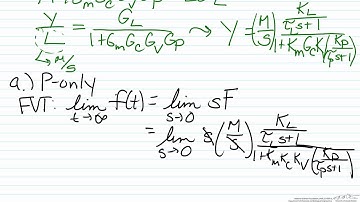 Y/L = G_L/(1+G_m G_c G_v G_p) → Y = (M/s) (K_L/(τ_L s+1))/(1+K_m K_c K_v (K_p/(τ_p s+1)))
↳ M/s
a.) P-only
FVT: lim t→∞ f(t) = lim s→0 sF
= lim s→0 s (M/s) (K_L/(τ_L s+1))/(1+K_m K_c K_v (K_p/(τ_p s+1)))